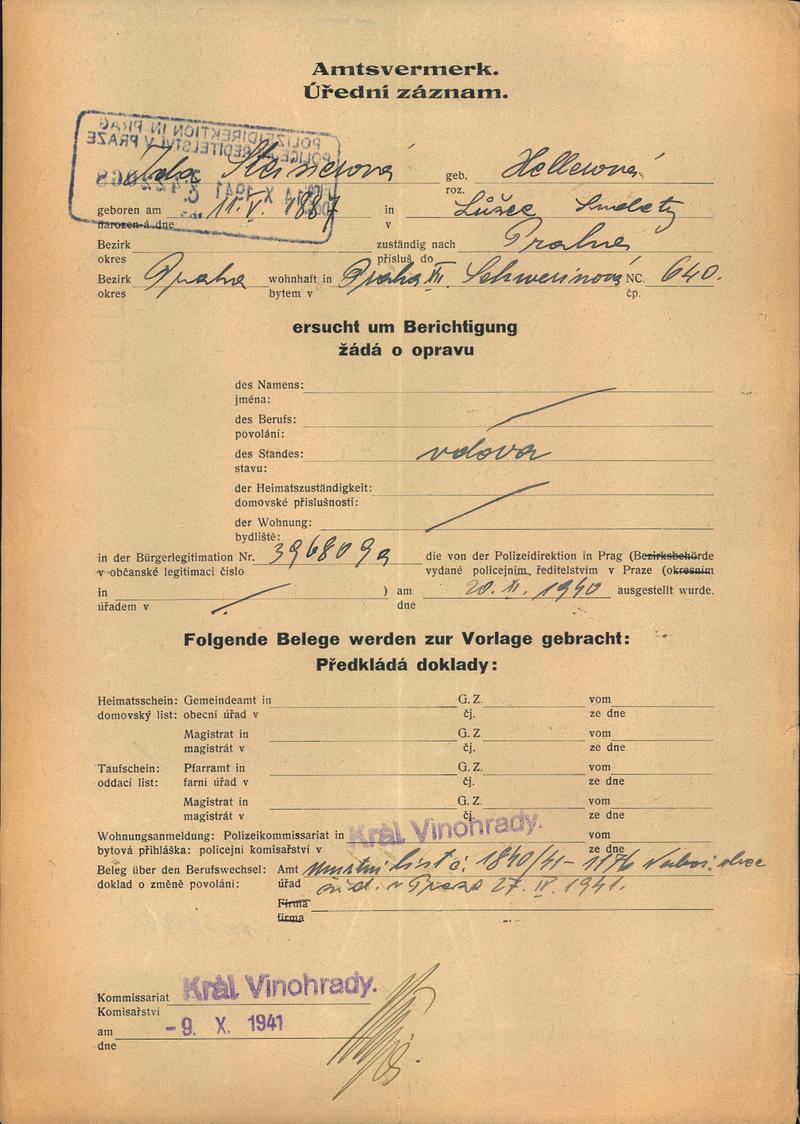 Amtsvermerk.
Úřední záznam.
POLIZEIDIREKTION IN PRAG
POLICEJNÍ ŘEDITELSTVÍ V PRAZE
Ida Steinerová geb. Hellerová
roz.
geboren am 11. V. 1887 in Lužec Sudety
narozen-á dne v
Bezirk zuständig nach Praha
okres přísluš. do
Bezirk Praha wohnhaft in Praha XII. Schwerinová NC. 640.
okres bytem v čp.
ersucht um Berichtigung
žádá o opravu
des Namens:
jména:
des Berufs:
povolání:
des Standes: vdova
stavu:
der Heimatszuständigkeit:
domovské příslušnosti:
der Wohnung:
bydliště:
in der Bürgerlegitimation Nr. 396809a die von der Polizeidirektion in Prag (Bezirksbehörde
v občanské legitimaci číslo vydané policejním ředitelstvím v Praze (okresním
in ) am 20. XI. 1940 ausgestellt wurde.
úřadem v dne
Folgende Belege werden zur Vorlage gebracht:
Předkládá doklady:
Heimatsschein: Gemeindeamt in G. Z. vom
domovský list: obecní úřad v čj. ze dne
Magistrat in G. Z. vom
magistrát v čj. ze dne
Taufschein: Pfarramt in G. Z. vom
oddací list: farní úřad v čj. ze dne
Magistrat in G. Z. vom
magistrát v čj. ze dne
Wohnungsanmeldung: Polizeikommissariat in Král. Vinohrady. vom
bytová přihláška: policejní komisařství v ze dne
Beleg über den Berufswechsel: Amt Úmrtní list č. 1840/41 - 1176 Nábož. obce
doklad o změně povolání: úřad žid. v Praze 27. IV. 1941.
Firma
firma
Kommissariat Král. Vinohrady.
Komisařství
am -9. X. 1941
dne